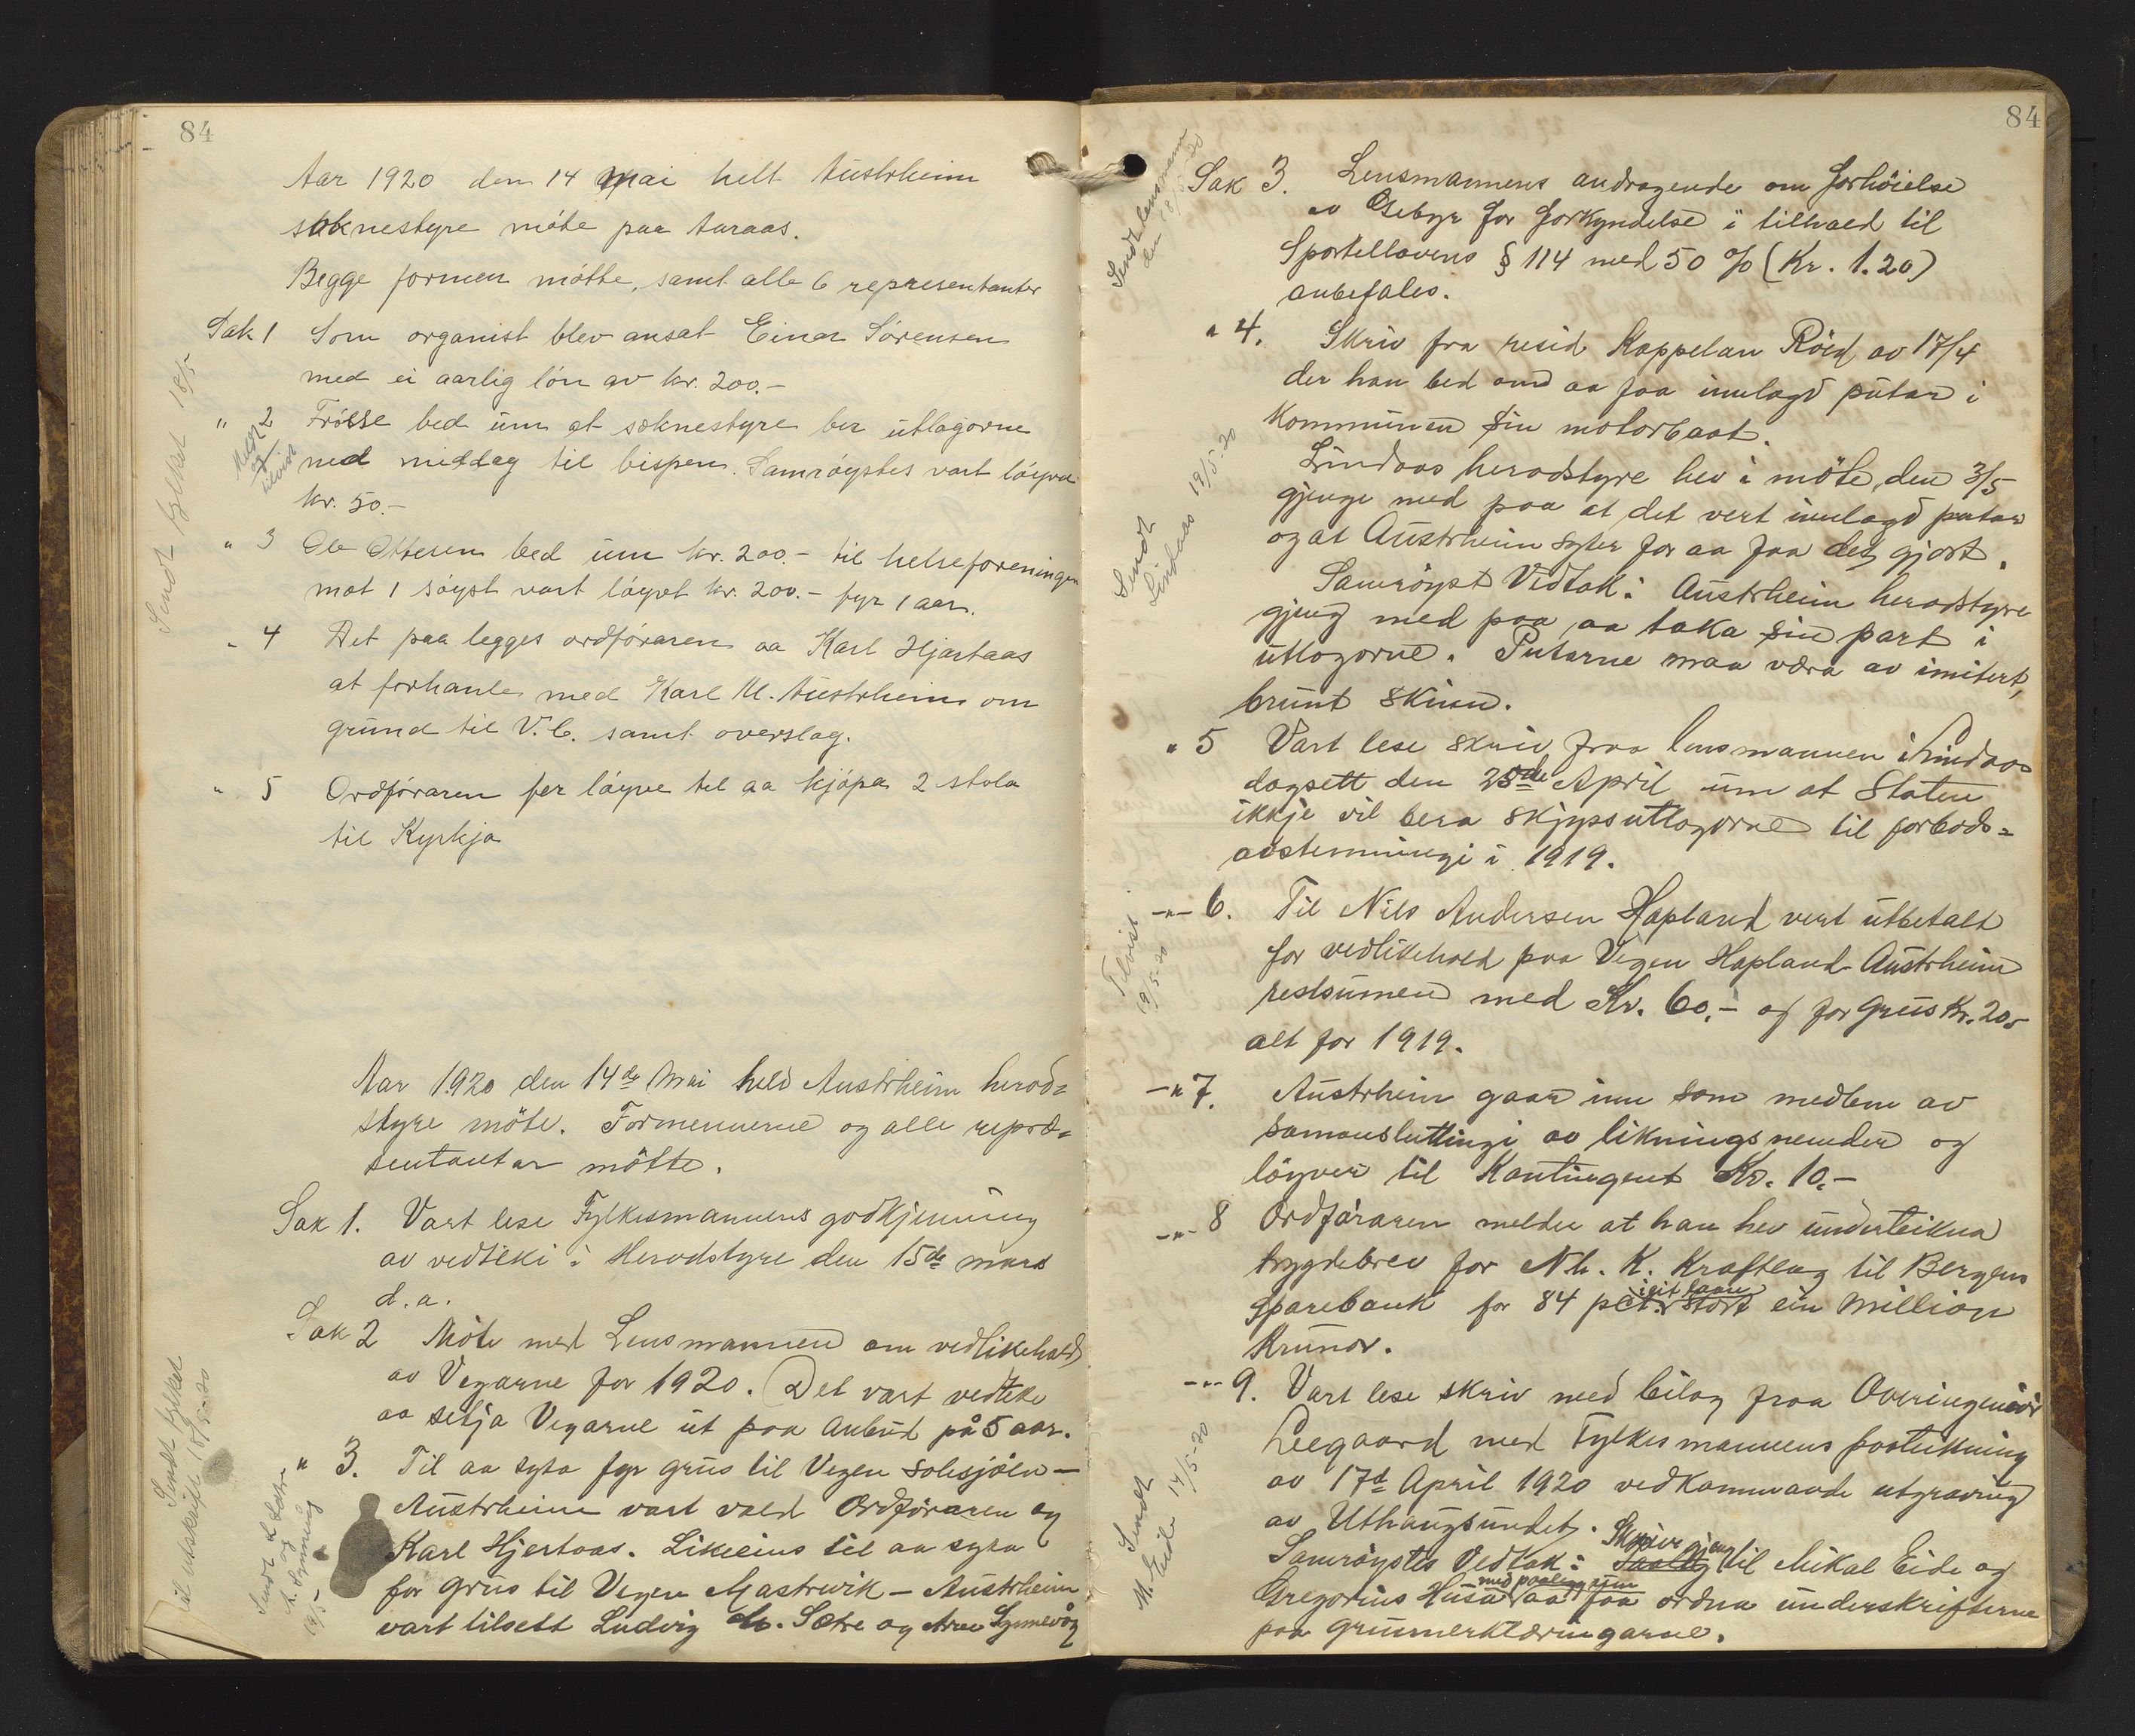 84
Aar 1920 den 14 Mai helt Austrheim
soknestyre møte paa Aaraas.
Begge formen møtte, samt alle 6 representanter
Sak 1 Som organist blev ansat Einar Sørensen
med ei aarlig løn av kr. 200.-
" 2 bed um at soknestyre ber utlagorne
med middag til bispen. Samrøystes vart løyva
kr. 50.-
" 3 Ole Ottesen bed um kr. 200.- til helseforeningen
mot 1 røyst vart løyvt kr. 200.- fyr 1 aar.
" 4 Det paa legges ordføraren aa Karl Hjartaas
at forhandle med Karl M. Austrheim om
grund til V.C. samt overslag.
" 5 Ordføraren fer løyve til aa kjøpa 2 stola
til Kyrkja
Sendt fylket 18/5
Aar 1920 den 14de Mai held Austrheim herod=
styre møte. Formennerne og alle repræ=
sentantar møtte.
Sak 1. Vart lese Fylkesmannens godkjenning
av vedteki i Herodstyre den 15de mars
d.a.
Sak 2 Møte med Lensmannen om vedlikehald
av Vegarne for 1920. Det vart vedteke
aa setja Vegarne ut paa Anbud på 5 aar.
" 3. Til aa syta fyr grus til Vegen Solesjøen –
Austrheim vart vald Ordføraren og
Karl Hjertaas. Likeeins til aa syta
for grus til Vegen Mastrevik – Austrheim
vart tilsett Ludvig M. Sætre og Arne Synnevåg
Sendt fylket
i utskrift 18/5-20
Sendt L. Sætre
og
A. Synnevåg
19/5
84
Sak 3. Lensmannens andragende om forhöielse
av Gebyr for forkyndelse i tilhold til
Sportellovens § 114 med 50 % (Kr. 1.20)
anbefales.
" 4. Skriv fra resid Kappelan Röed av 17/4
der han bed om aa faa innlagd putar i
Kommunen sin motorbaat.
Lindaas heradstyre hev i möte den 3/5
gjenge med paa at det vert innlagd putar
og at Austrheim syter for aa faa det gjort.
Samröyst Vedtak: Austrheim heradstyre
gjeng med paa aa taka sin part i
utlogorne. Putarne maa være av imitert,
brunt skinn.
" 5 Vart lese skriv fraa lensmannen i Lindaas
dagsett den 25de April um at Staten
ikkje vil bera skjyssutlogorne til forbods=
avstemningi i 1919.
-"- 6. Til Nils Andersen Hopland vert utbetalt
for vedlikehold paa Vegen Hopland-Austrheim
restsumen med Kr. 60.- og for Grus Kr. 20.-
alt for 1919.
-" 7. Austrheim gaar inn som medlem av
samanslutningi av likningsnemder og
löyver til Kontingent Kr. 10.-
-"- 8 Ordföraren melder at han hev underteikna
trygdebrev for N.h. K. Kraftlag til Bergens
Sparebank for 84 pct. i eit laan stort ein Million
Krunor.
-"- 9. Vart lese skriv med bilag fraa Overingeniör
Leegaard med Fylkesmannens paateikning
av 17d April 1920 vedkommande utgraving
av Uthaugsundet.
Samröystes Vedtak: Skriv gjeng til Mikal Eide og
Gregorius Husa med paalegg um aa faa ordna underskrifterne
paa grunnerklæringarne.
Sendt lensmann
den 18/5-20
Sendt
Lindaas 19/5-20
Tilvist
19/5-20
Sendt
M. Eide 14/5-20